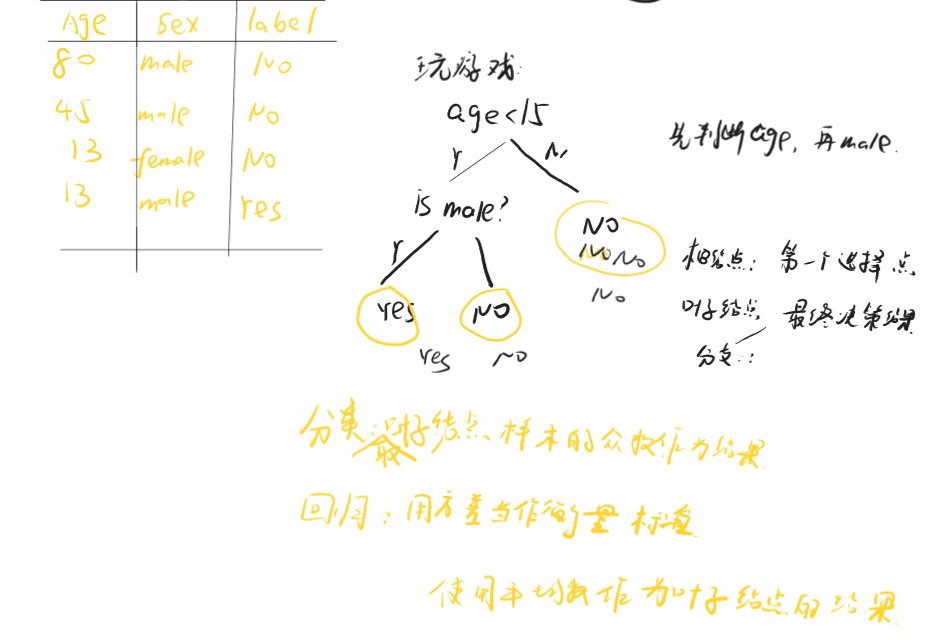 Age sex label
80 male No
45 male No
13 female No
13 male yes.
玩游戏:
age<15
Y N
is male?
Y
yes NO
yes NO
NO
NO NO
No
先判断age, 再male.
根结点: 第一个选择点
叶子结点, 最终决策结果
分支:
分类: 取叶子结点样本的众数作为结果
回归: 用方差当作衡量标准
使用平均数作为叶子结点的结果